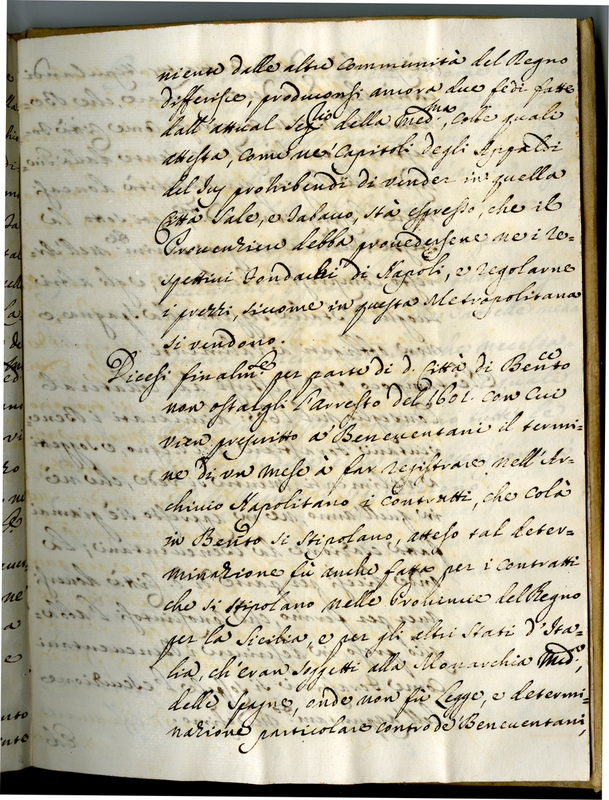 niente dalle altre Communità del Regno
differisce, produconsi ancora due fedi fatte
dall'attual Seg.rio della med.ma, colle quale
attesta, come ne' Capitoli degli Appaldi
del Jus prohibendi di vender in quella
Città Sale, e Tabaco, stà espresso, che il
debba provedersene ne i re-
spettivi Fondachi di Napoli, e regolarne
i prezzi, siccome in questa Metropolitana
si vendono.
Dicesi finalm.te per parte di d. Città di Ben.to
non ostargli l'Arresto del 1601. con cui
vien prescritto a' Beneventani il termi-
ne di un mese à far registrare nell'Ar-
chivio Napolitano i Contratti, che colà
in Ben.to si stipolano, atteso tal deter-
minazione fù anche fatta per i contratti
che si stipolano nelle Provincie del Regno
per la Sicilia, e per gli altri Stati d'Ita-
lia, ch'eran soggetti alla Monarchia Med.a,
delle Spagne, onde non fù Legge, e determi-
nazione particolare contro de' Beneventani,